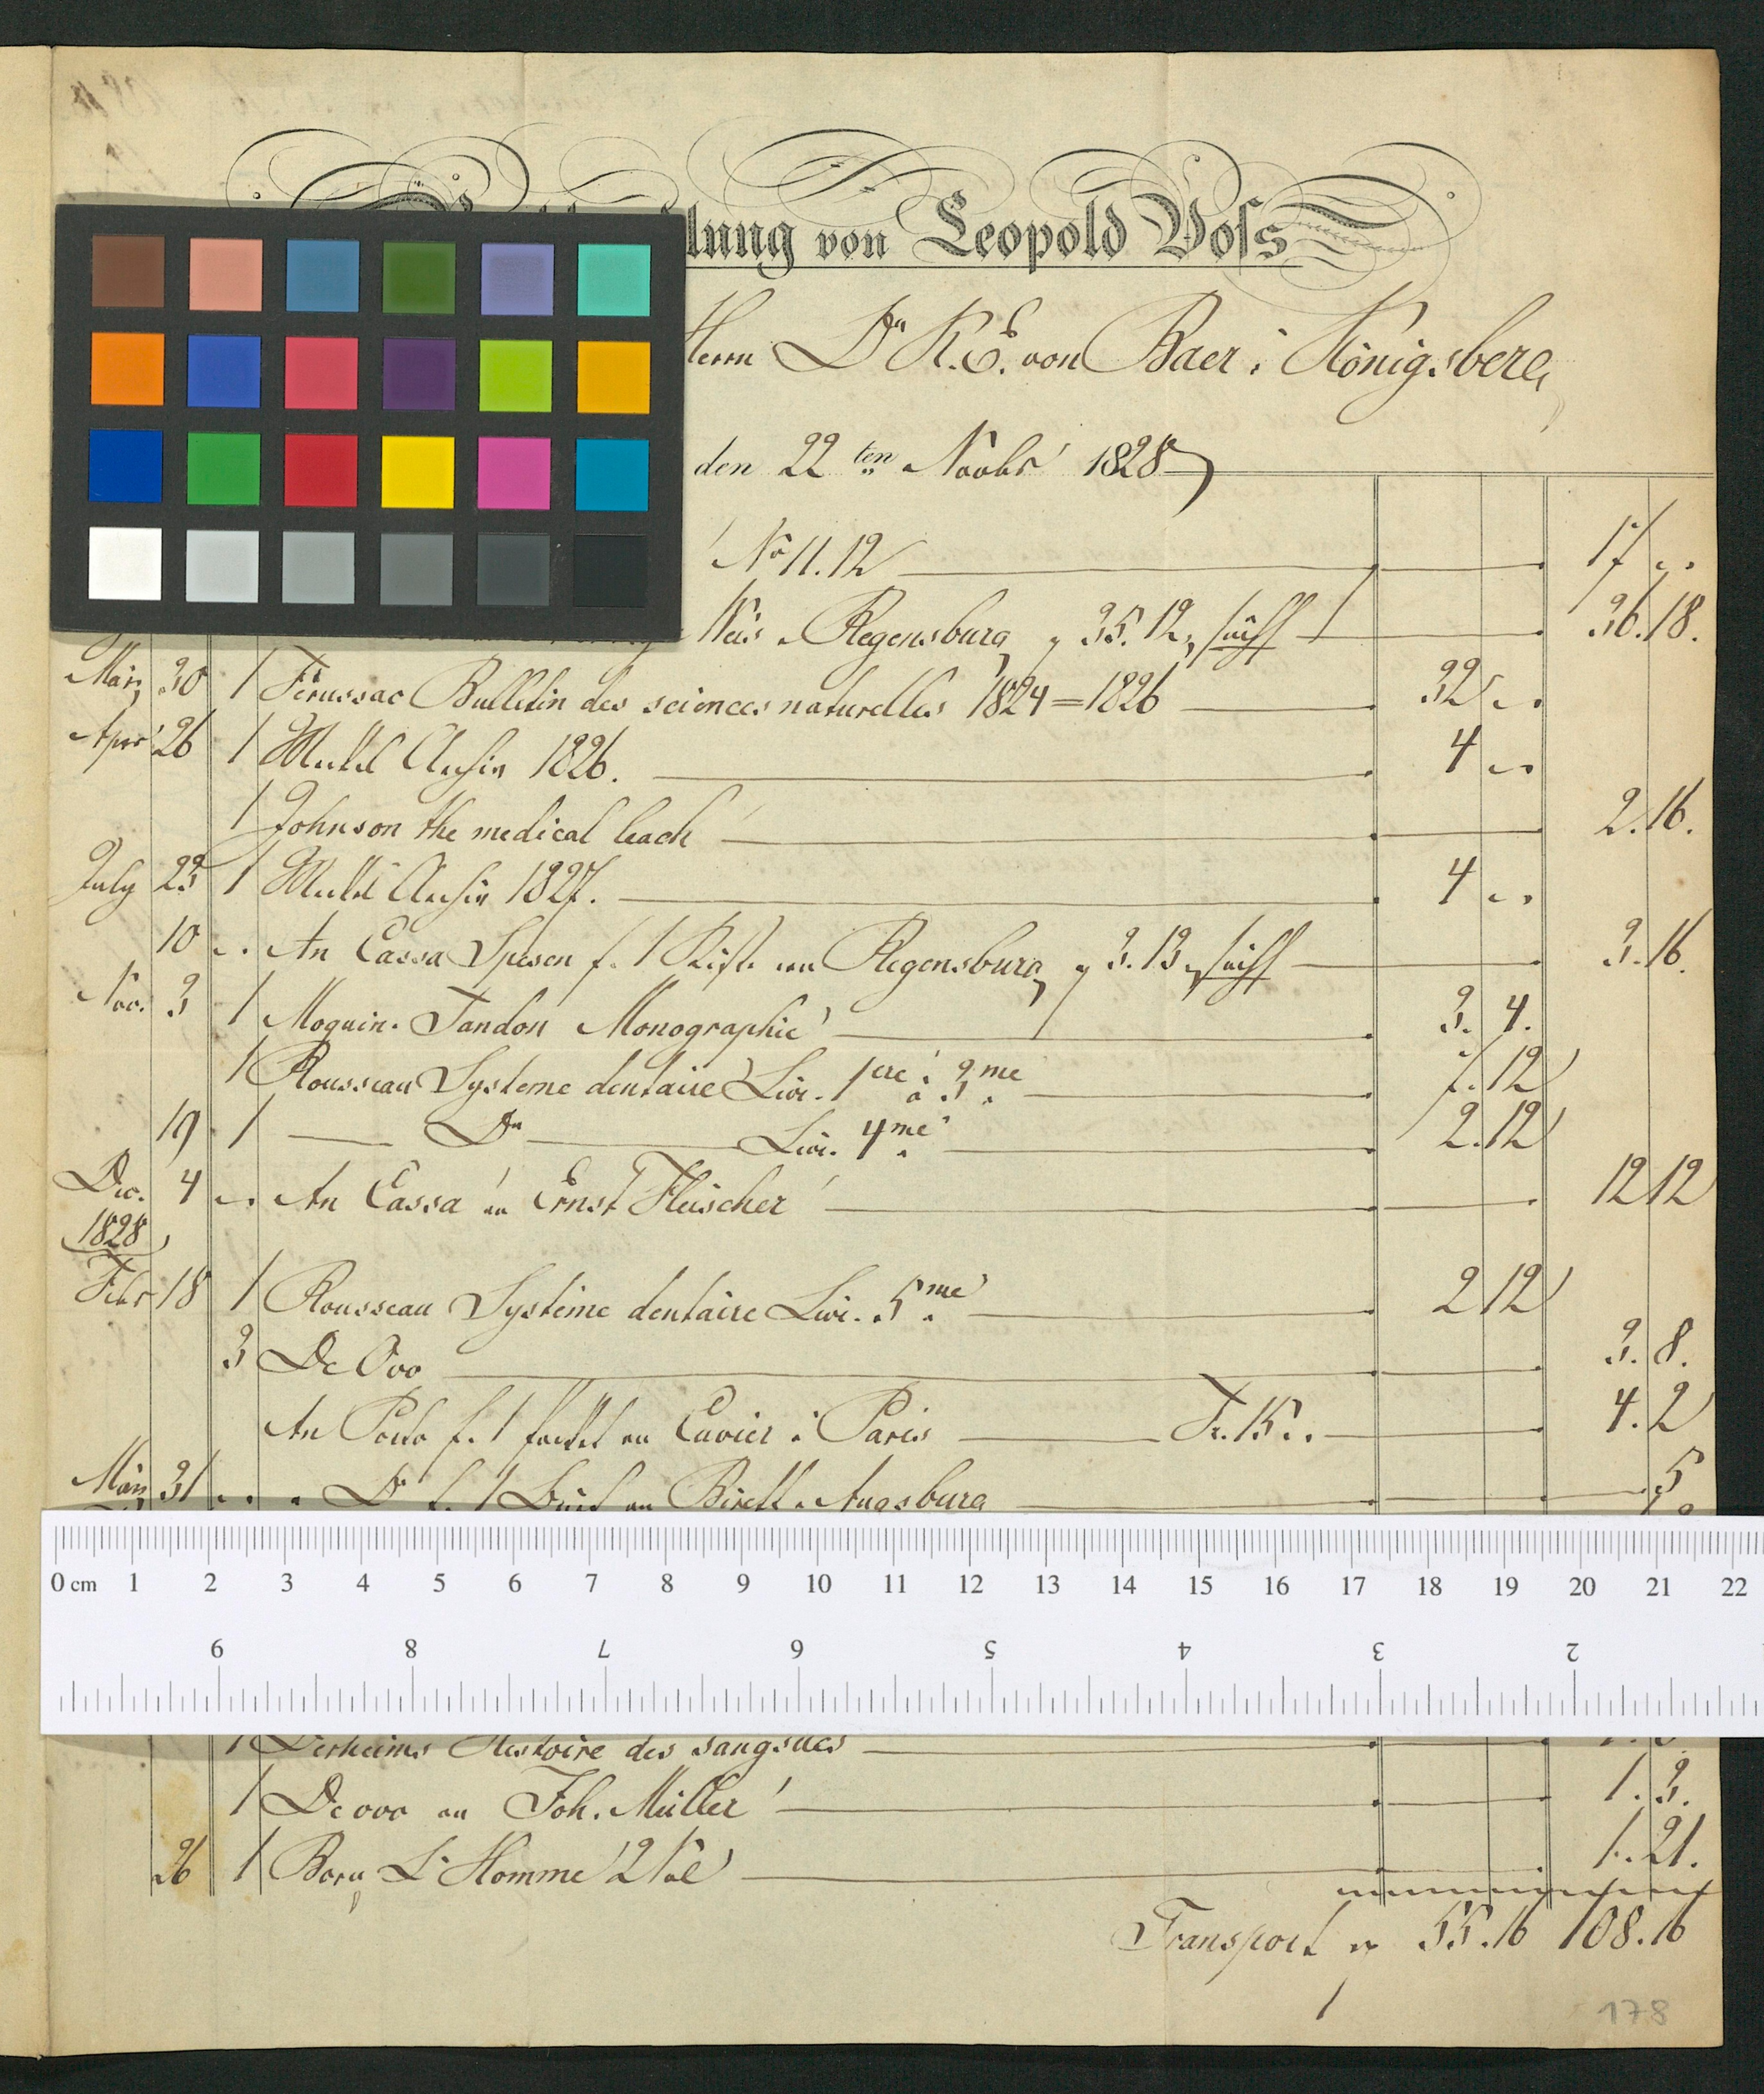 lung von Leopold Voſs
Herrn Dr K.E. von Baer i Königsberg
den 22ten Novbr 1828
No 11.12 17 ..
Regensburg 35.12 sächſ 36.18.
März 30 1 Férussac Bulletin des sciences naturelles 1824=1826 32 ..
Apr 26 1 Meckel Archiv 1826. 4 ..
1 Johnson the medical leach 2.16.
July 23 1 Meckel Archiv 1827. 4 ..
10 .. An Cassa Spesen f. 1 Kiste von Regensburg 3.13 sächſ 3.16.
Nov. 3 1 Moquin-Tandon Monographie 3. 4.
1 Rousseau Systeme dentaire Livr. 1ere à 3me 7.12
19 1 — Do — Livr. 4me 2.12
Dec. 4 .. An Cassa an Ernst Fleischer 12 12
1828
Febr 18 1 Rousseau Systéme dentaire Livr. 5me 2 12
3 De Ovo 3. 8.
An Porto f. 1 Packet an Cuvier i Paris Fr. 15.. 4. 2
März 31 .. Do f. 1 Brief an Augsburg 5
0 cm 1 2 3 4 5 6 7 8 9 10 11 12 13 14 15 16 17 18 19 20 21 22
9 8 7 6 5 4 3 2
1 Derheims Histoire des sangsues
1 De ovo an Joh. Müller 1. 3.
26 1 Bory L'Homme 2 Vol 1. 21.
Transport 55.16 108.16
1
178